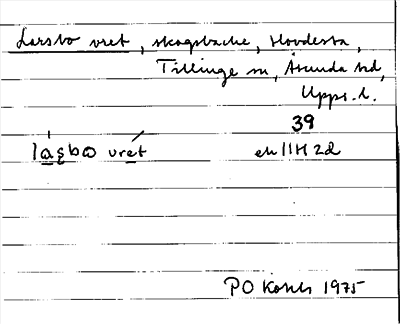 Larsbo vret, skogsbacke, Hovdesta,
Tillinge sn, Åsunda hd,
Upps. l.
39
lasbo vret ek 11H 2d
PO Kohls 1975